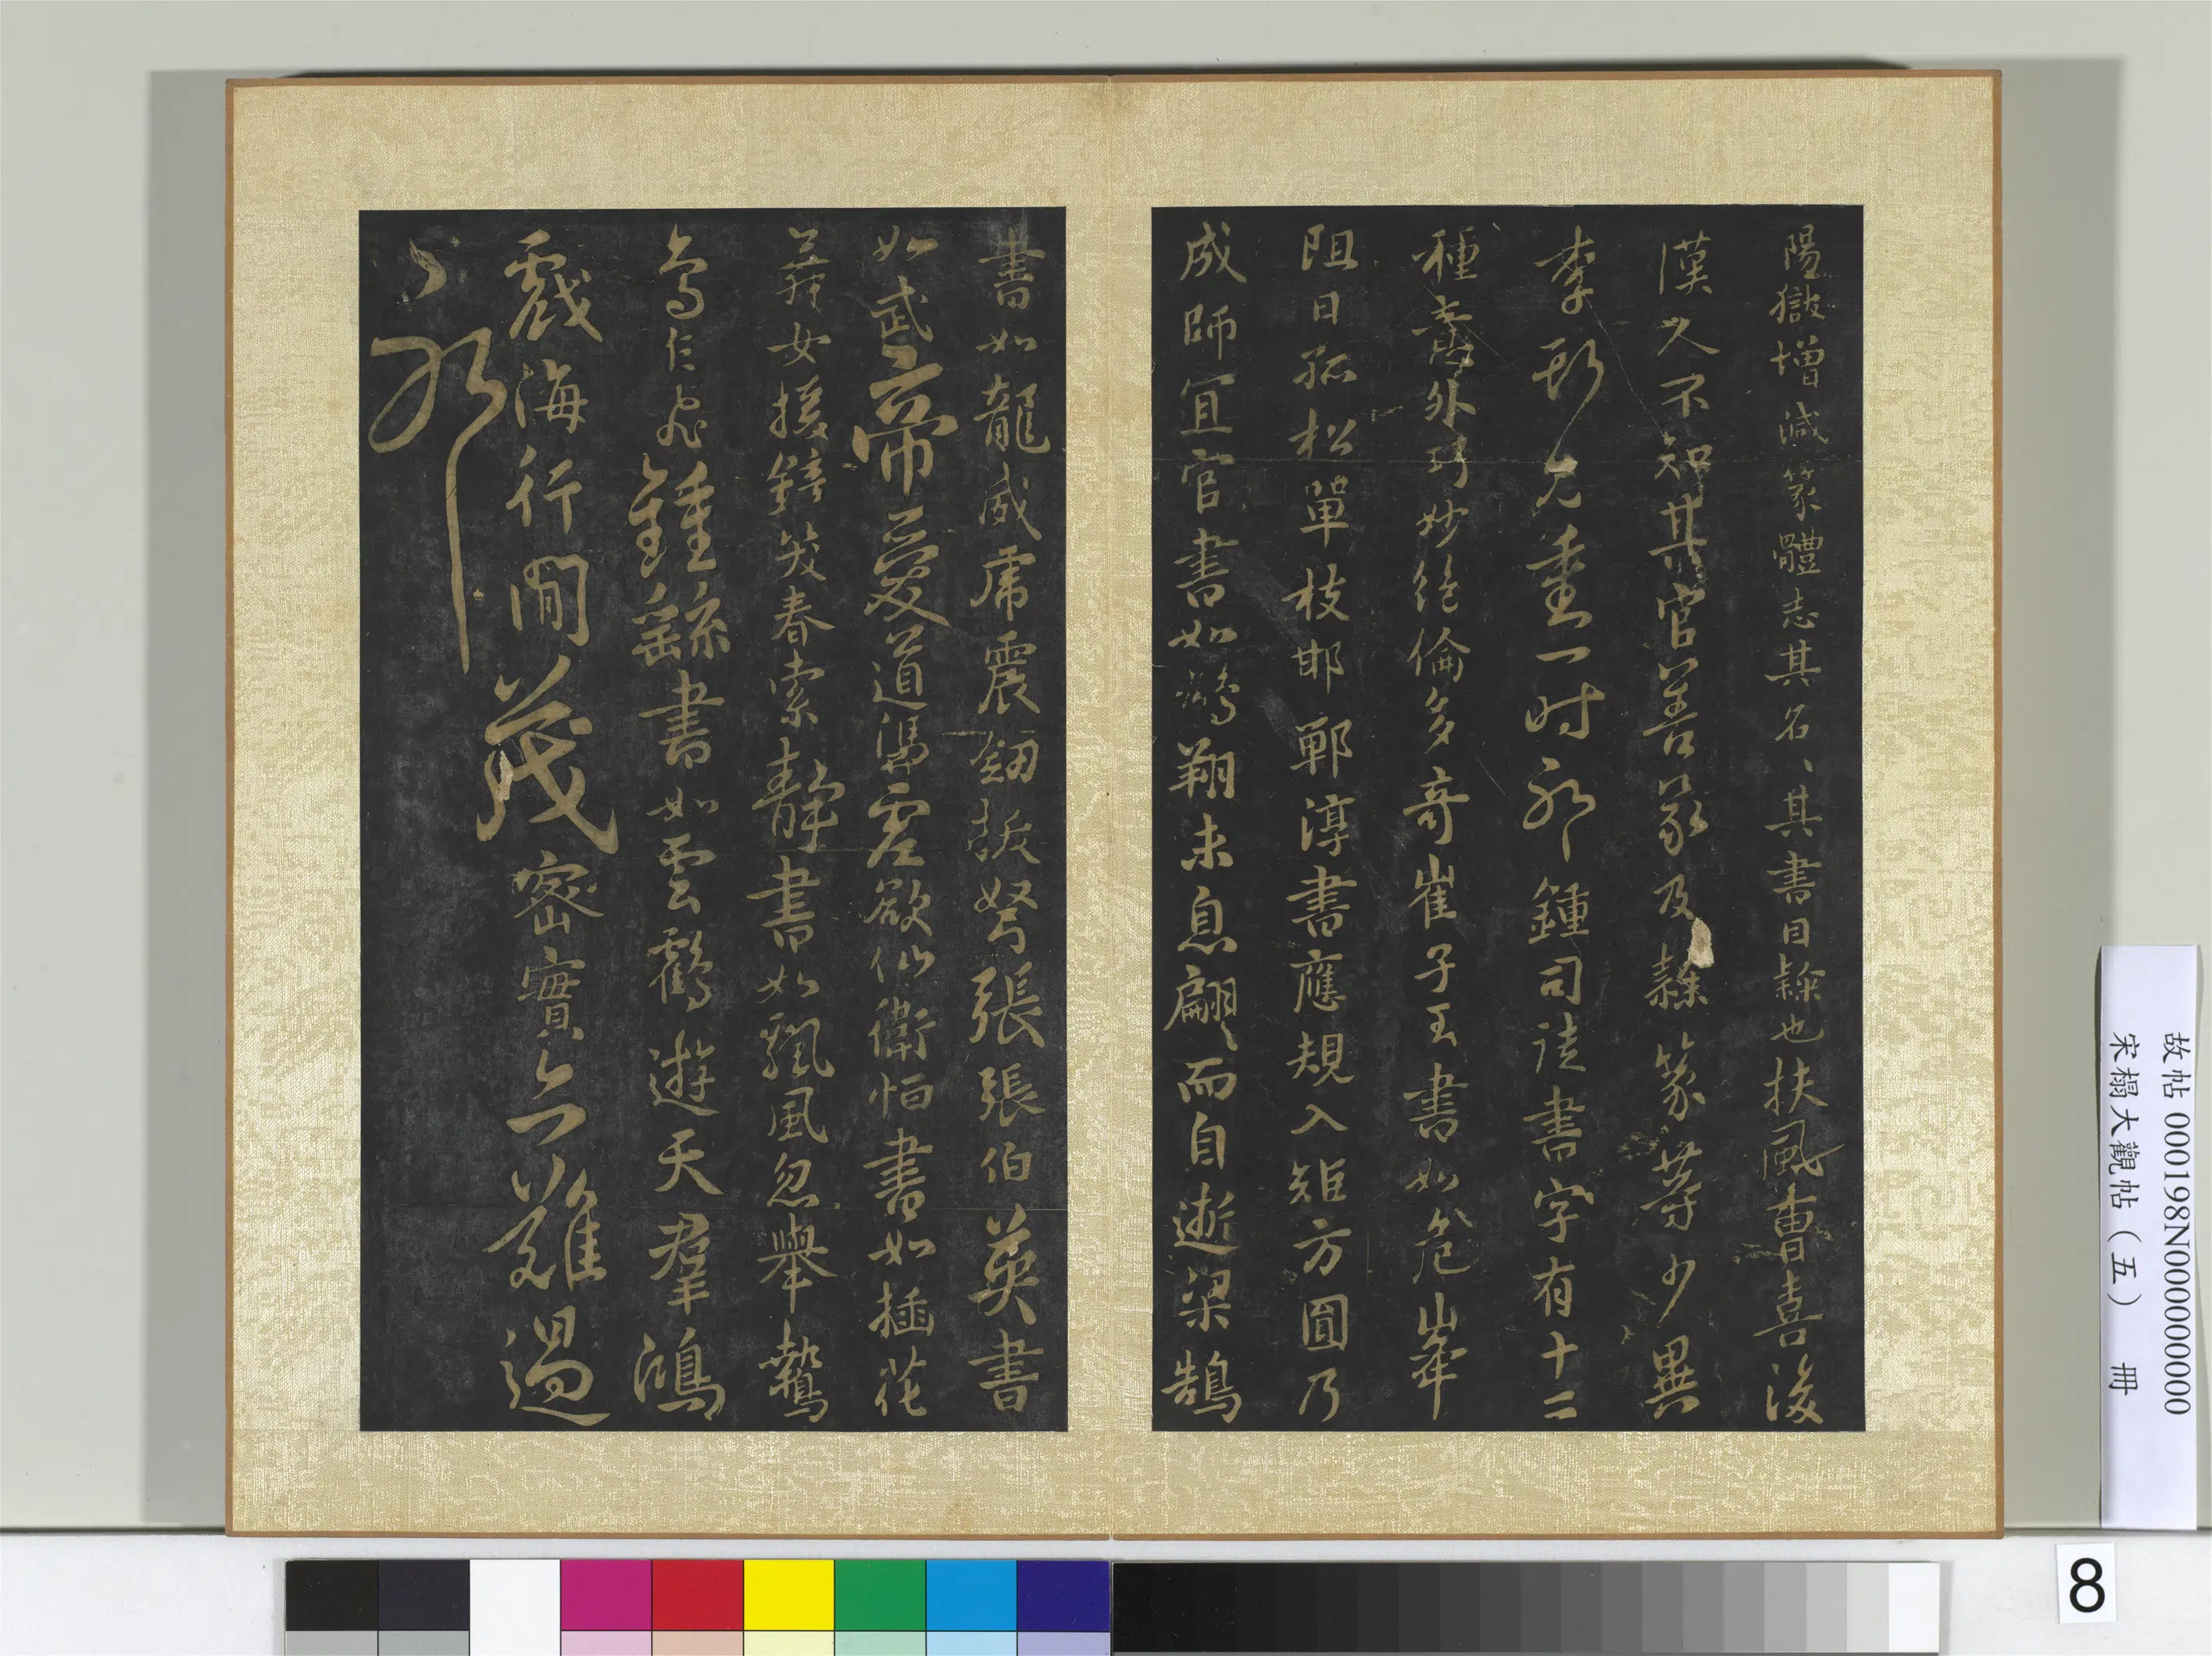 陽獄增減篆體志其名、其書曰隸也扶風曹喜後
漢人不知其官善篆及隸篆等少異
李斯尤重一时耶鍾司徒書字有十二
種意外巧妙絕倫多奇崔子玉書如危峯
阻日孤松單枝邯鄲淳書應規入矩方圓乃
成師宜官書如鵰翔未息翩〻而自逝梁鵠
書如龍威虎震劒拔弩張張伯英書
如武帝愛道憑虛欲仙衛恒書如插花
舞女援鏡笑春索靜書如飄風忽舉鷙
鳥乍飛鍾繇書如雲鶴遊天羣鴻
戲海行間茂密實亦難過
故帖 000198N000000000
宋榻大觀帖（五） 冊
8